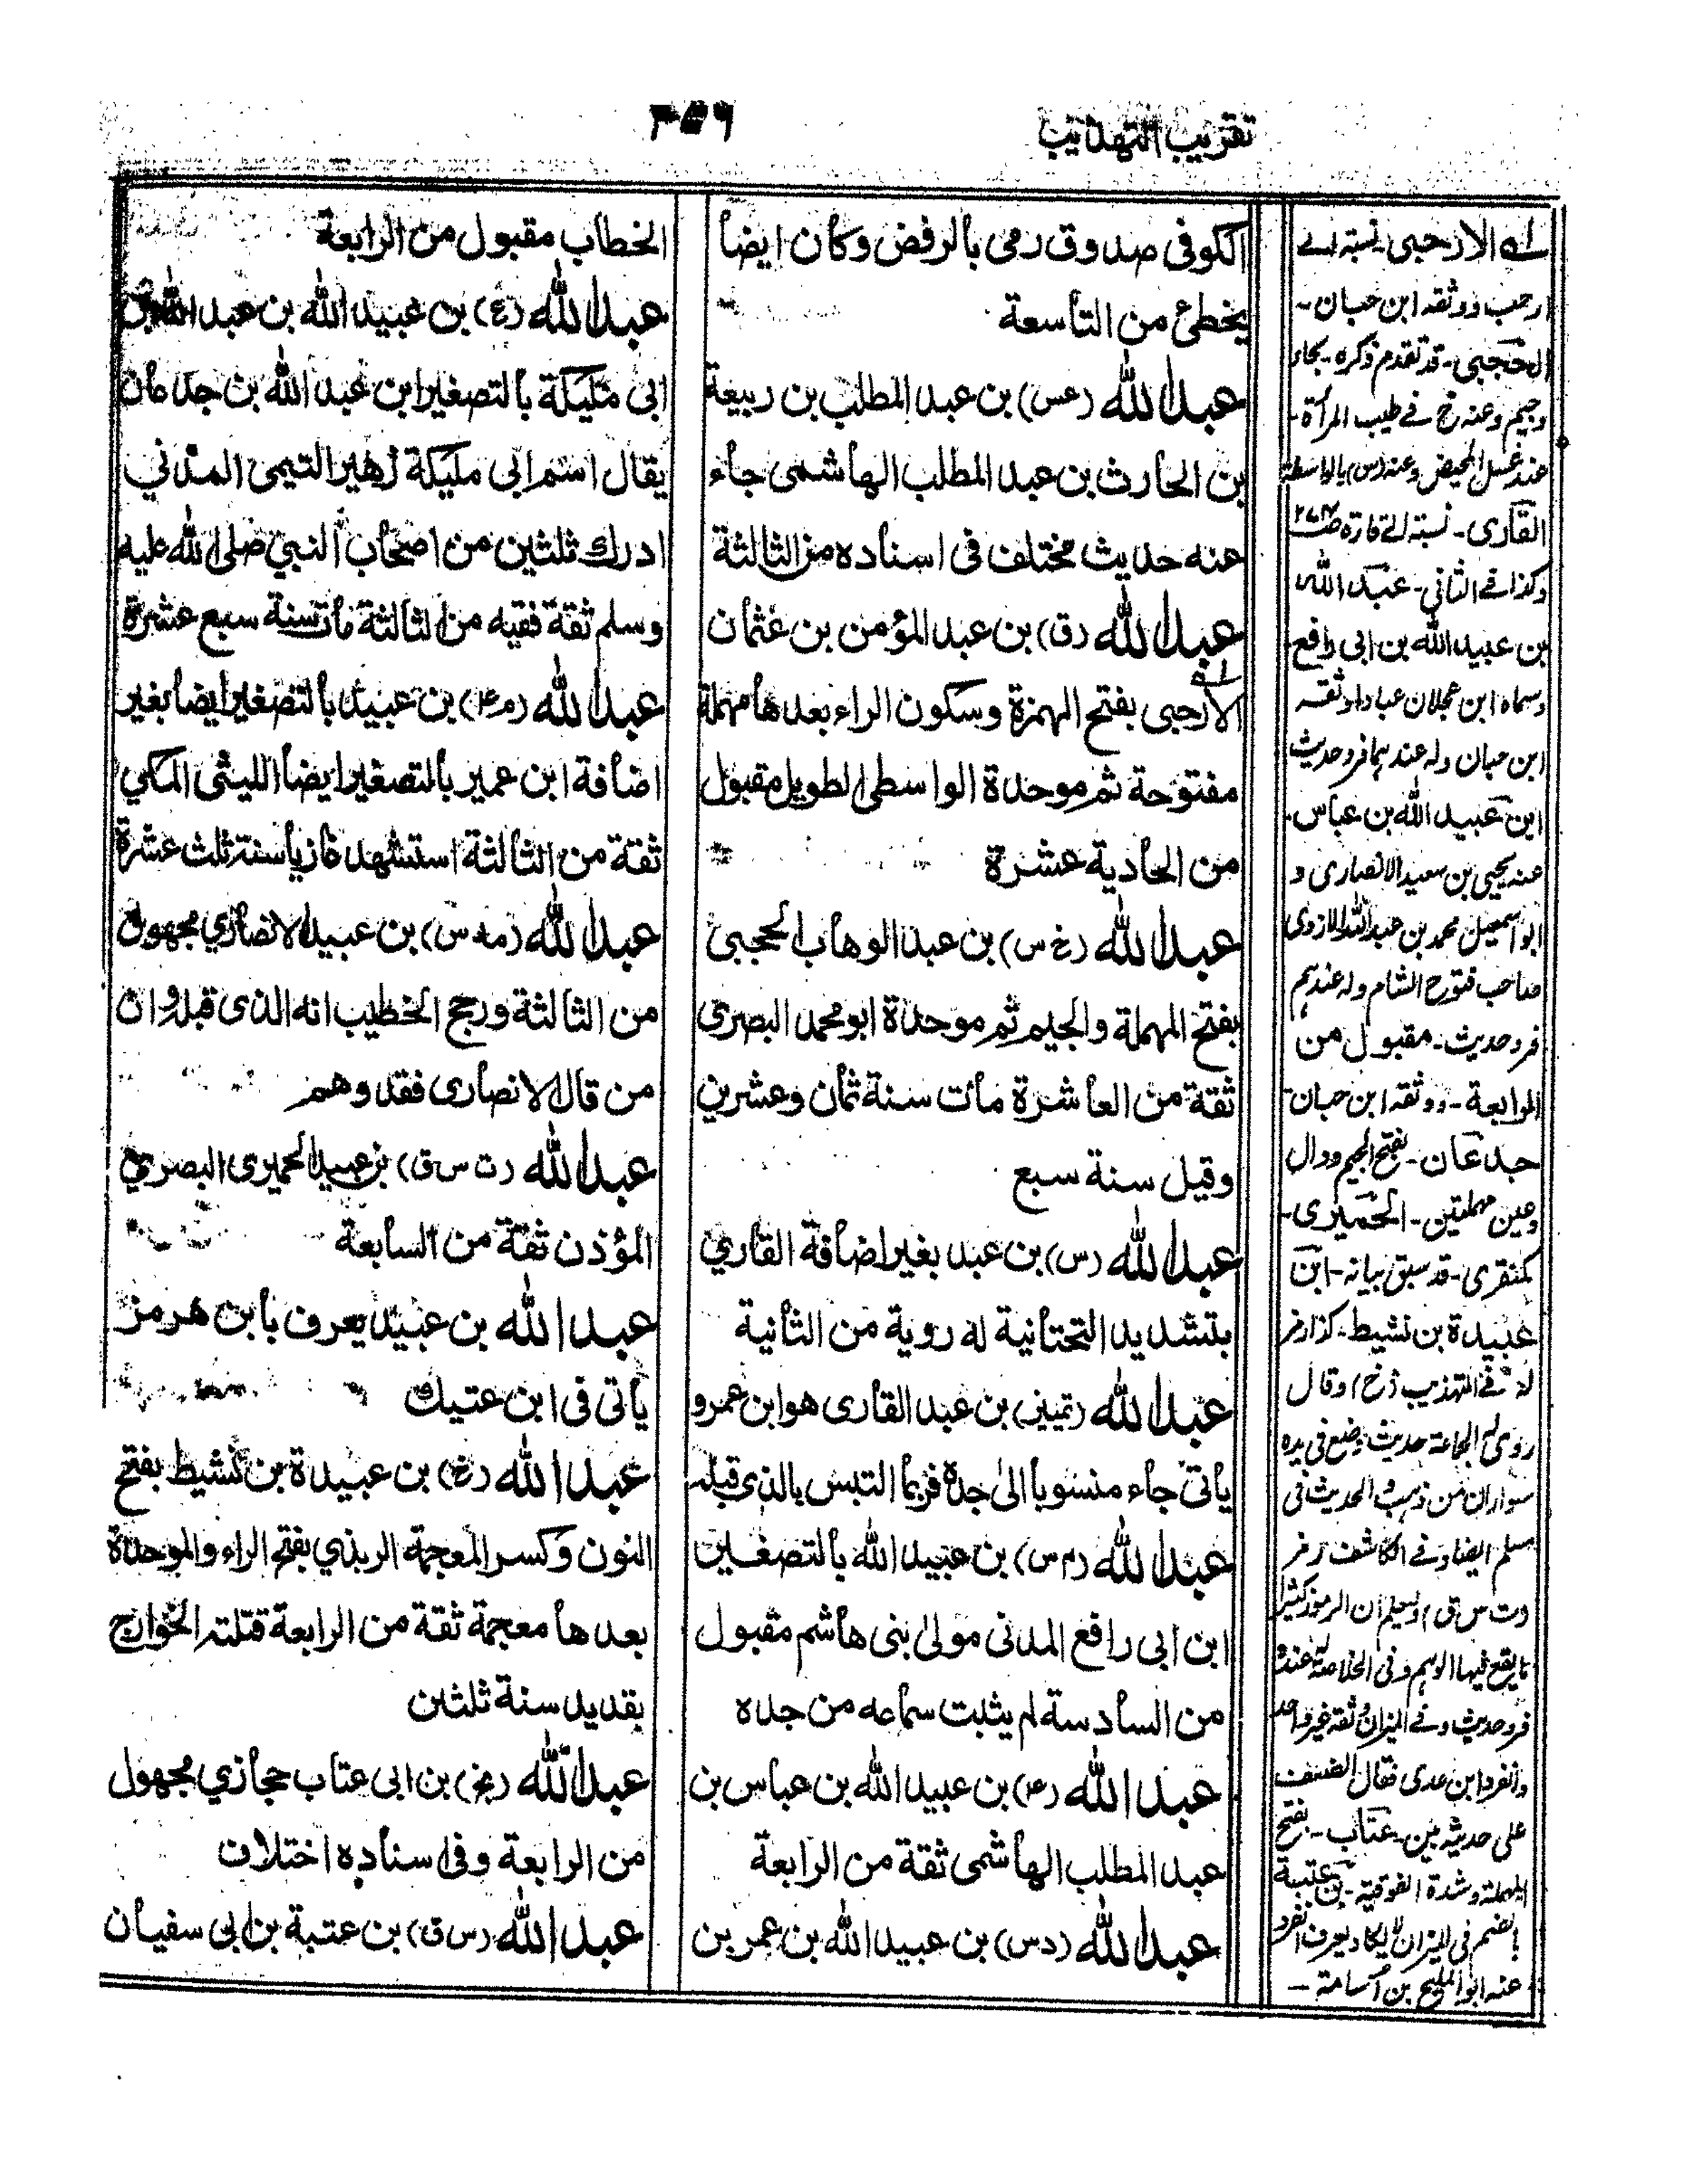 تقريب التهذيب
الكوفى صدوق رمى بالرفض وكان ايضا
يخطئ من التاسعة
عبد الله (عس) بن عبد المطلب بن ربيعة
بن الحارث بن عبد المطلب الهاشمى جاء
عنه حديث مختلف فى اسناده من الثالثة
عبد الله (ق) بن عبد المؤمن بن عثمان
الارحبى بفتح الهمزة وسكون الراء بعدها مهملة
مفتوحة ثم موحدة الواسطى الطويل مقبول
من الحادية عشرة
عبد الله (خ س) بن عبد الوهاب الحجبى
بفتح المهملة والجيم ثم موحدة ابو محمد البصرى
ثقة من العاشرة مات سنة ثمان وعشرين
وقيل سنة سبع
عبد الله (س) بن عبد بغير اضافة القاري
بتشديد التحتانية له روية من الثانية
عبد الله (تمييز) بن عبد القارى هو ابن عمرو
ياتى جاء منسوبا الى جده فربما التبس بالذى قبله
عبد الله (م س) بن عبيد الله بالتصغير
ابن ابى رافع المدنى مولى بنى هاشم مقبول
من السادسة لم يثبت سماعه من جده
عبد الله (عه) بن عبيد الله بن عباس بن
عبد المطلب الهاشمى ثقة من الرابعة
عبد الله (د س) بن عبيد الله بن عمر بن
الخطاب مقبول من الرابعة
عبد الله (ع) بن عبيد الله بن عبد الله بن
ابى مليكة بالتصغير ابن عبد الله بن جدعان
يقال اسم ابى مليكة زهير التيمى المدني
ادرك ثلثين من اصحاب النبي صلى الله عليه
وسلم ثقة فقيه من الثالثة مات سنة سبع عشرة
عبد الله (م عه) بن عبيد بالتصغير ايضا بغير
اضافة ابن عمير بالتصغير ايضا الليثى المكي
ثقة من الثالثة استشهد غازيا سنة ثلث عشرة
عبد الله (مد س) بن عبيد الانصاري مجهول
من الثالثة ورجح الخطيب انه الذى قبله وان
من قال الانصارى فقد وهم
عبد الله (ت س ق) بن عبيد الحميرى البصري
المؤذن ثقة من السابعة
عبد الله بن عبيد يعرف بابن هرمز
ياتى فى ابن عتيك
عبد الله (خ) بن عبيدة بن نشيط بفتح
النون وكسر المعجمة الربذي بفتح الراء والموحدة
بعدها معجمة ثقة من الرابعة قتلته الخوارج
بقديد سنة ثلثين
عبد الله (بخ) بن ابى عتاب حجازي مجهول
من الرابعة وفى اسناده اختلاف
عبد الله (س ق) بن عتبة بن ابى سفيان
له الارحبى - نسبة لے
ارحب ووثقه ابن حبان -
الحجبى - قد تقدم ذكره - بحاء
وجيم وعنه خ فے طيب المرأة -
عند غسل المحيض وعنه (س) بالواسطة
القارى - نسبة الے قارة
وكذا فے الثانى - عبد الله
بن عبيد الله بن ابى رافع
وسماه ابن عجلان عبادا وثقه
ابن حبان وله عندهما فرد حديث
ابن عبيد الله بن عباس -
عنه يحيى بن سعيد الانصارى و
ابو اسمعيل محمد بن عبد الله الازدى
صاحب فتوح الشام وله عندهم
فرد حديث - مقبول من
الرابعة - ووثقه ابن حبان -
جدعان - بفتح الجيم ودال
وعين مهملتين - الحميرى -
كمنقرى - قد سبق بيانه - ابن
عبيدة بن نشيط - كذا رمز
له فے التهذيب (خ) وقال
روى له الجماعة حديث وضع فى يده
سواران من ذهب والحديث فى
مسلم ايضا وفے الكاشف رمز
(ت س ق) وليعلم ان الرموز كثيرا
ما يقع فيها الوهم وفى الخلاصة له عنده
فرد حديث وفے الميزان وثقه غير واحد
وانفرد ابن عدى فقال الضعف
على حديثه بين - عتاب - بفتح
المهملة وشدة الفوقية - بن عتبة
بالضم فى الميزان لا يكاد يعرف تفرد
عنه ابو المليح بن اسامة -